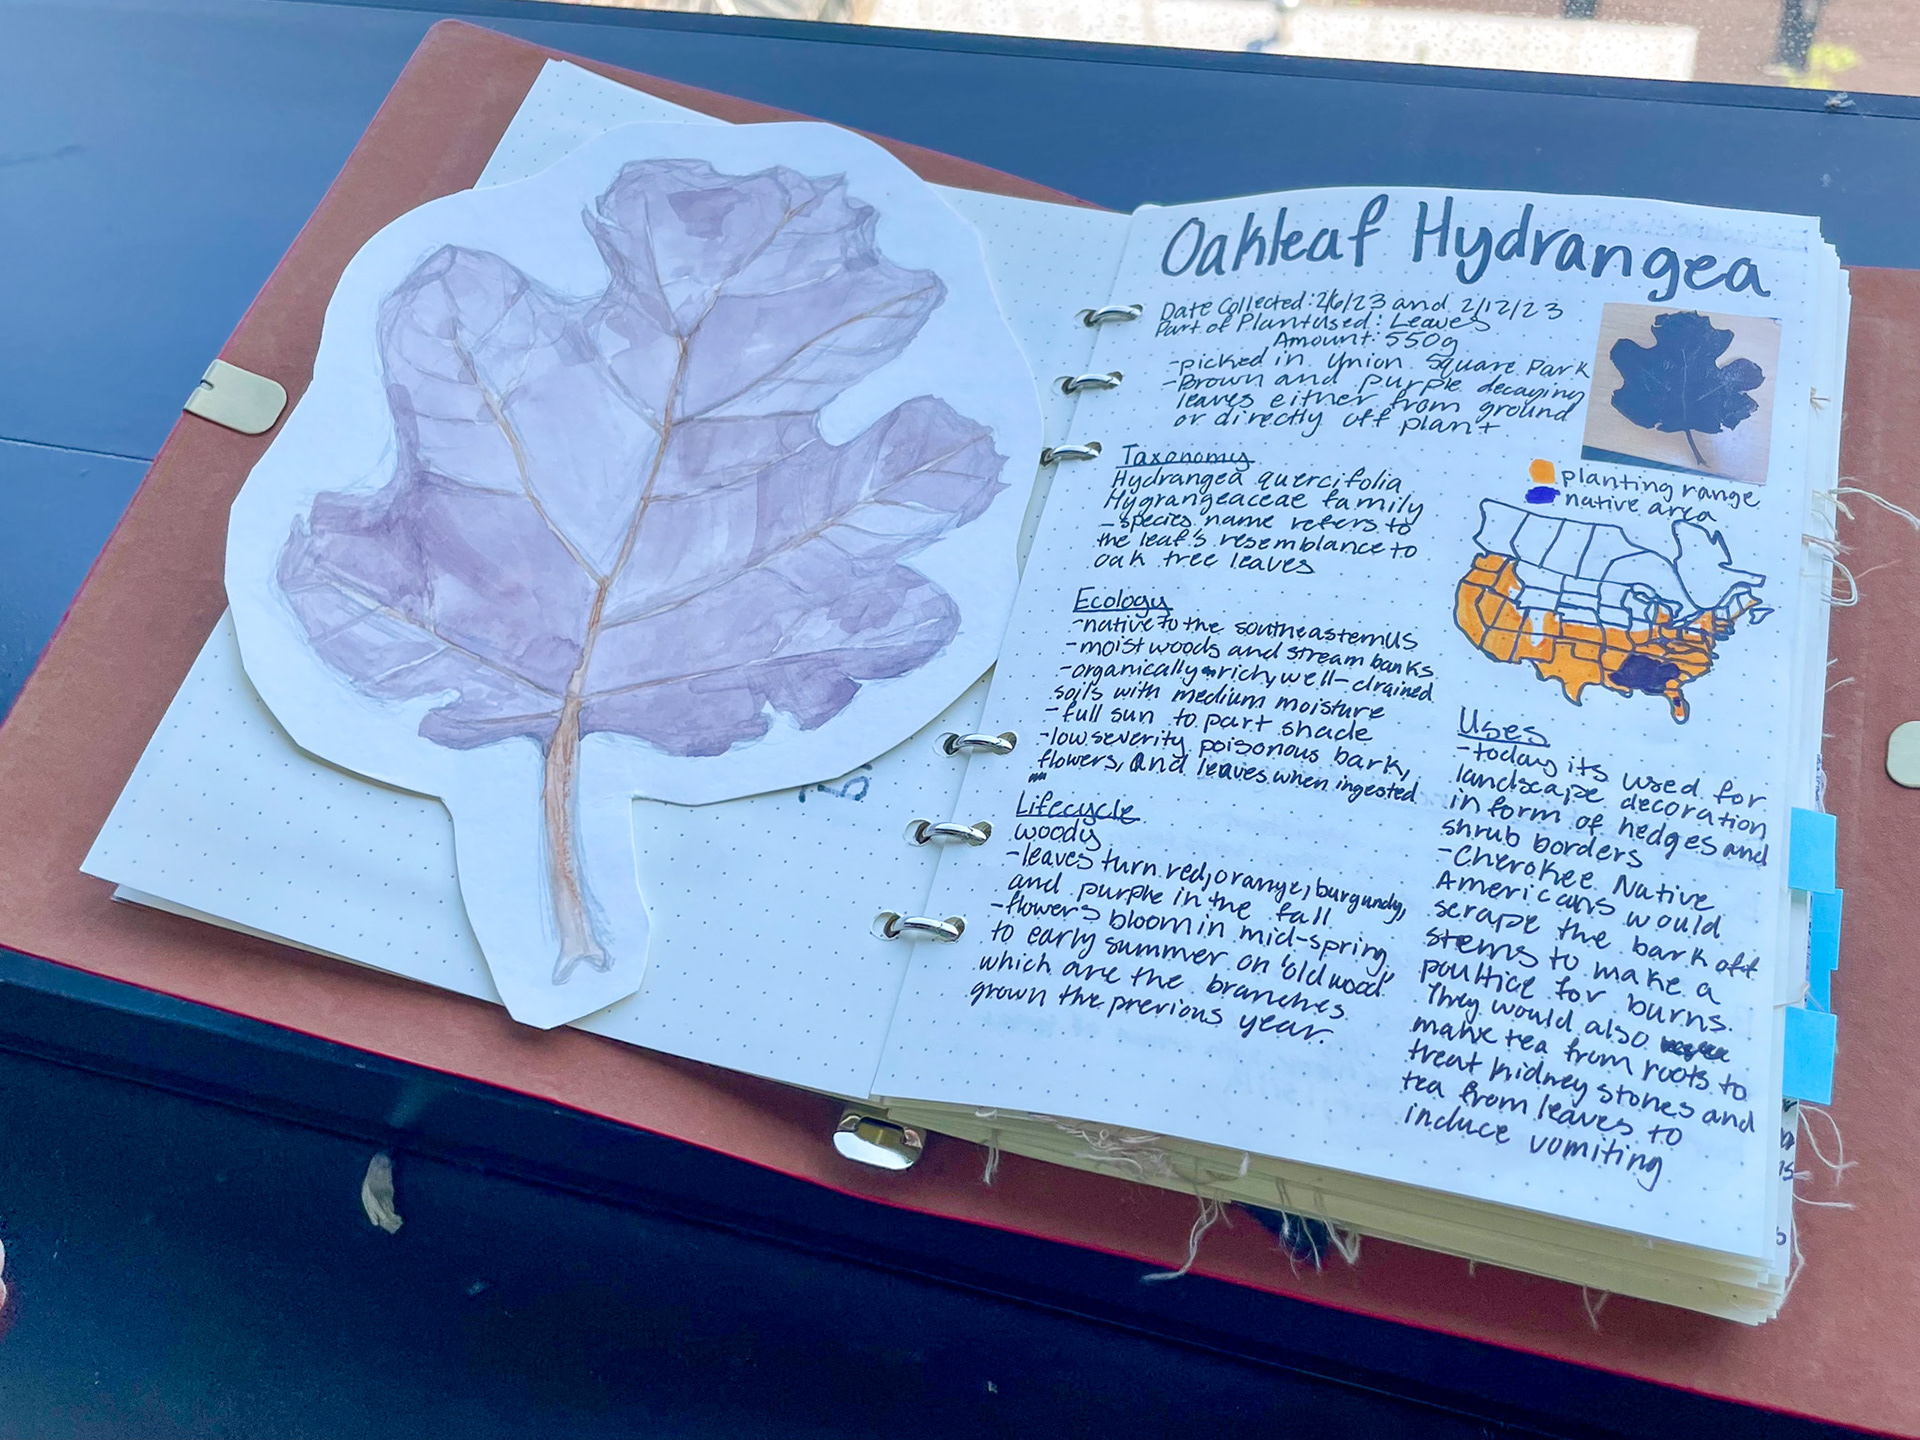 Oakleaf Hydrangea
Date Collected: 2/6/23 and 2/12/23
Part of Plant Used: Leaves
Amount: 550g
-picked in Union Square Park
-Brown and purple decaying
leaves either from ground
or directly off plant
Taxonomy
Hydrangea quercifolia
Hygrangeaceae family
-species name refers to
the leaf's resemblance to
oak tree leaves
Ecology
-native to the southeastern US
-moist woods and stream banks
-organically-rich, well-drained
soils with medium moisture
-full sun to part shade
-low severity poisonous bark,
flowers, and leaves when ingested
Lifecycle
woody
-leaves turn red, orange, burgundy,
and purple in the fall
-flowers bloom in mid-spring
to early summer on "old wood"
which are the branches
grown the previous year.
planting range
native area
Uses
-today its used for
landscape decoration
in form of hedges and
shrub borders
-Cherokee Native
Americans would
scrape the bark off
stems to make a
poultice for burns.
They would also
make tea from roots to
treat kidney stones and
tea from leaves to
incluce vomiting